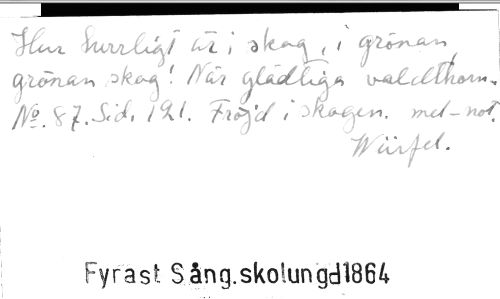 Hur hurrligt är i skog, i grönan,
grönan skog! När glädtiga valdthorn.
No. 87. Sid. 121. Fröjd i skogen. mel-not.
Würfel.
Fyrast Sång.skolungd1864